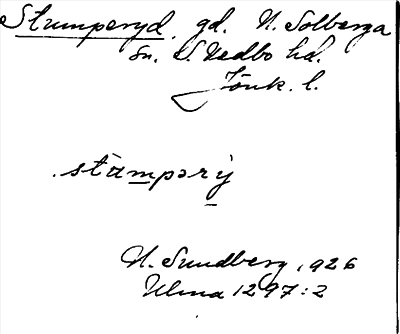 Stumperyd, gd. N. Solberga
sn. S. Vedbo hd.
Jönk. l.
stàmpərỳ
N. Sundberg, 926
Ulma 1297:2